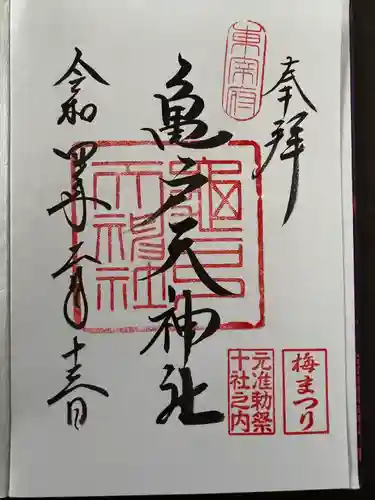 奉拝
東宰府
亀戸天神社
亀戸天神社
令和四年二月十六日
梅まつり
元准勅祭
十社之内